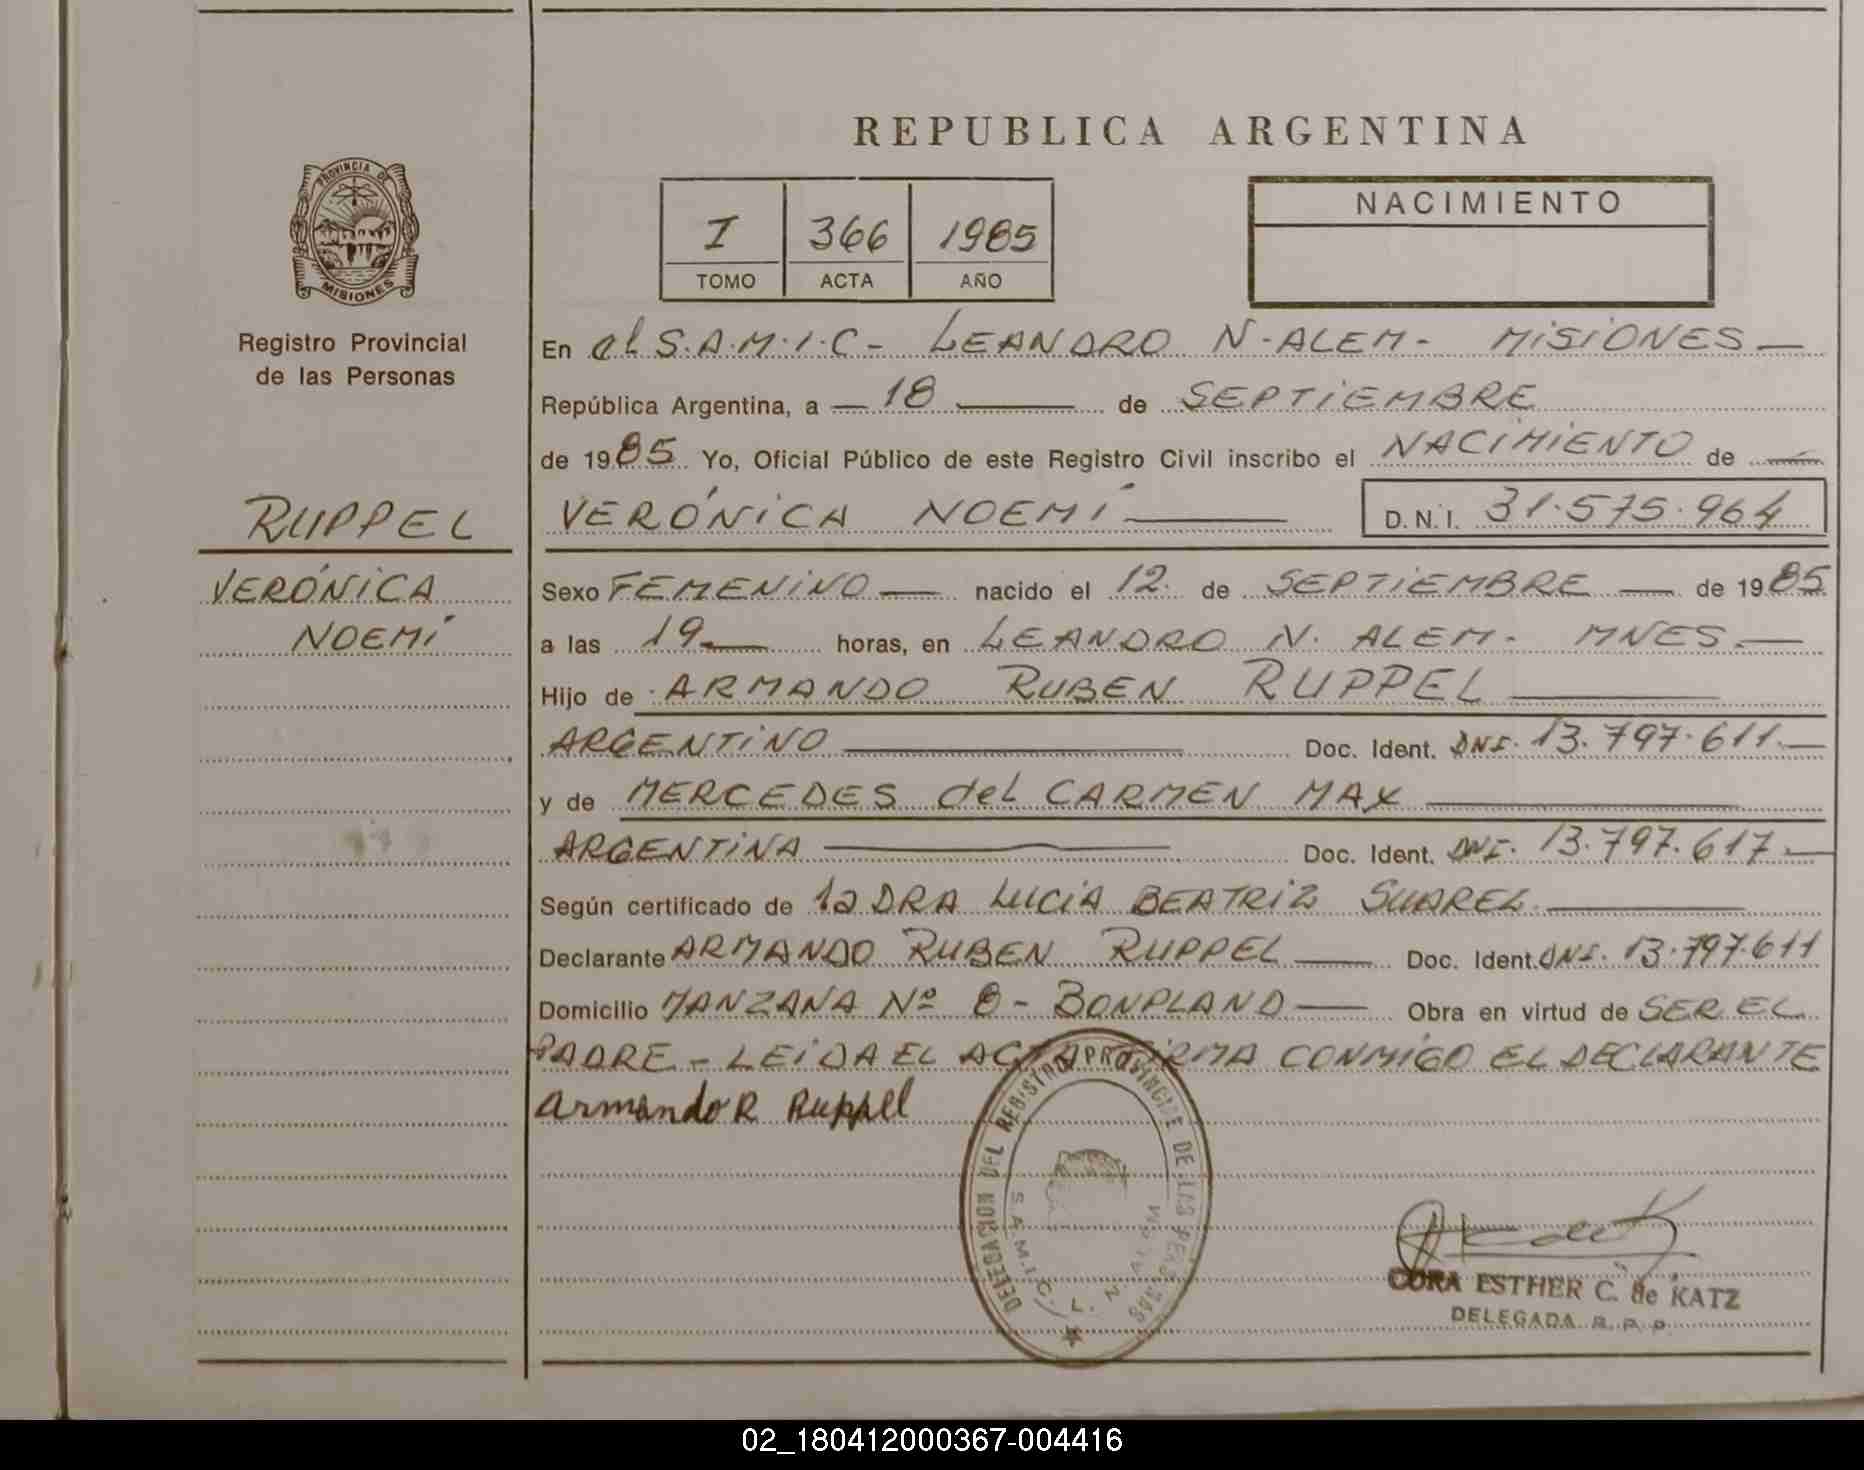 REPUBLICA ARGENTINA
PROVINCIA DE
MISIONES
Registro Provincial
de las Personas
I 366 1985
TOMO ACTA AÑO
NACIMIENTO
En el S.A.M.I.C- LEANDRO N-ALEM- MISIONES —
República Argentina, a — 18 — de SEPTIEMBRE
de 1985 Yo, Oficial Público de este Registro Civil inscribo el NACIMIENTO de —
RUPPEL
VERÓNICA NOEMÍ — D.N.I. 31.575.964
VERÓNICA
NOEMÍ
Sexo FEMENINO — nacido el 12. de SEPTIEMBRE — de 1985
a las 19 — horas, en LEANDRO N. ALEM- MNES —
Hijo de ARMANDO RUBEN RUPPEL —
ARGENTINO — Doc. Ident. DNI. 13.797.611.—
y de MERCEDES del CARMEN MAX —
ARGENTINA — Doc. Ident. DNI. 13.797.617.—
Según certificado de la DRA LUCIA BEATRIZ SUAREZ —
Declarante ARMANDO RUBEN RUPPEL — Doc. Ident. DNI. 13.797.611
Domicilio MANZANA Nº 8 - BONPLAND — Obra en virtud de SER EL
PADRE - LEIDA EL ACTA FIRMA CONMIGO EL DECLARANTE
Armando R Ruppel
DELEGACION DEL REGISTRO PROVINCIAL DE LAS PERSONAS
S.A.M.I.C. L. N. ALEM
CORA ESTHER C. de KATZ
DELEGADA R.P.P.
02_180412000367-004416